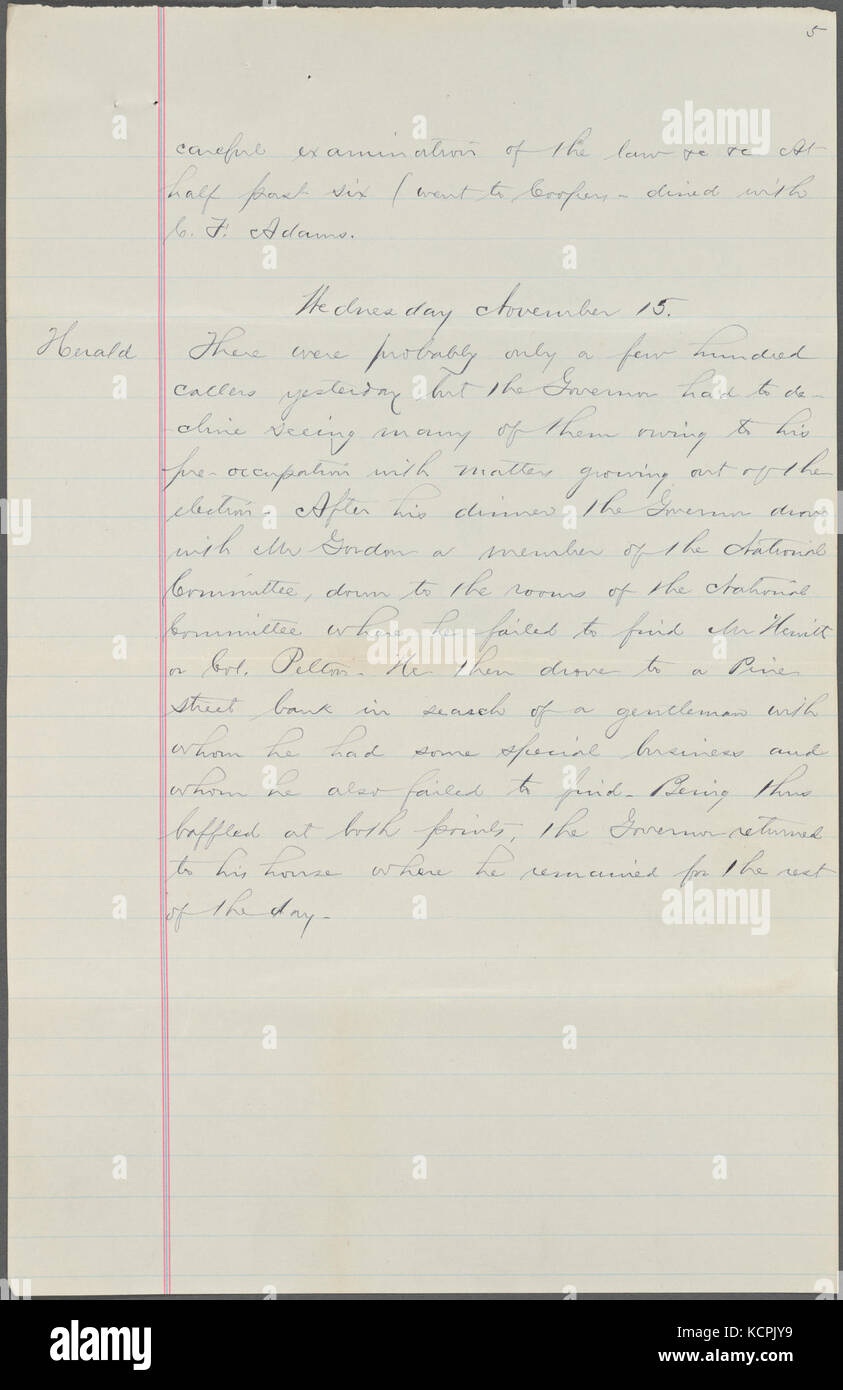 5
careful examination of the law &c &c At
half past six I went to Coopers - dined with
C. F. Adams.
Wednesday November 15.
Herald There were probably only a few hundred
callers yesterday but the Governor had to de-
-cline seeing many of them owing to his
pre-occupation with matters growing out of the
election - After his dinner the Governor drove
with Mr Gordon a member of the National
Committee, down to the rooms of the National
Committee where he failed to find Mr Hewitt
or Col. Pelton - He then drove to a Pine
street bank in search of a gentleman with
whom he had some special business and
whom he also failed to find - Being thus
baffled at both points, the Governor returned
to his house where he remained for the rest
of the day -
alamy stock photo
alamy
Image ID: KCPJY9
www.alamy.com